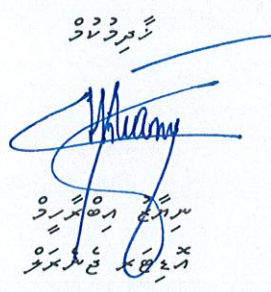 ޚާދިމުކުމް
ނިޔާޒު އިބްރާހީމް
އޮޑިޓަރ ޖެނެރަލް